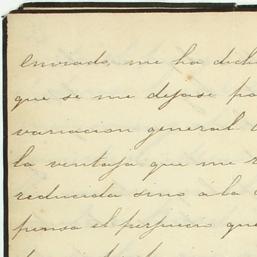 enviado, me ha dich
que se me dejase pa
variacion general
la ventaja que me r
reducida sino á la
pensa el perjuicio que